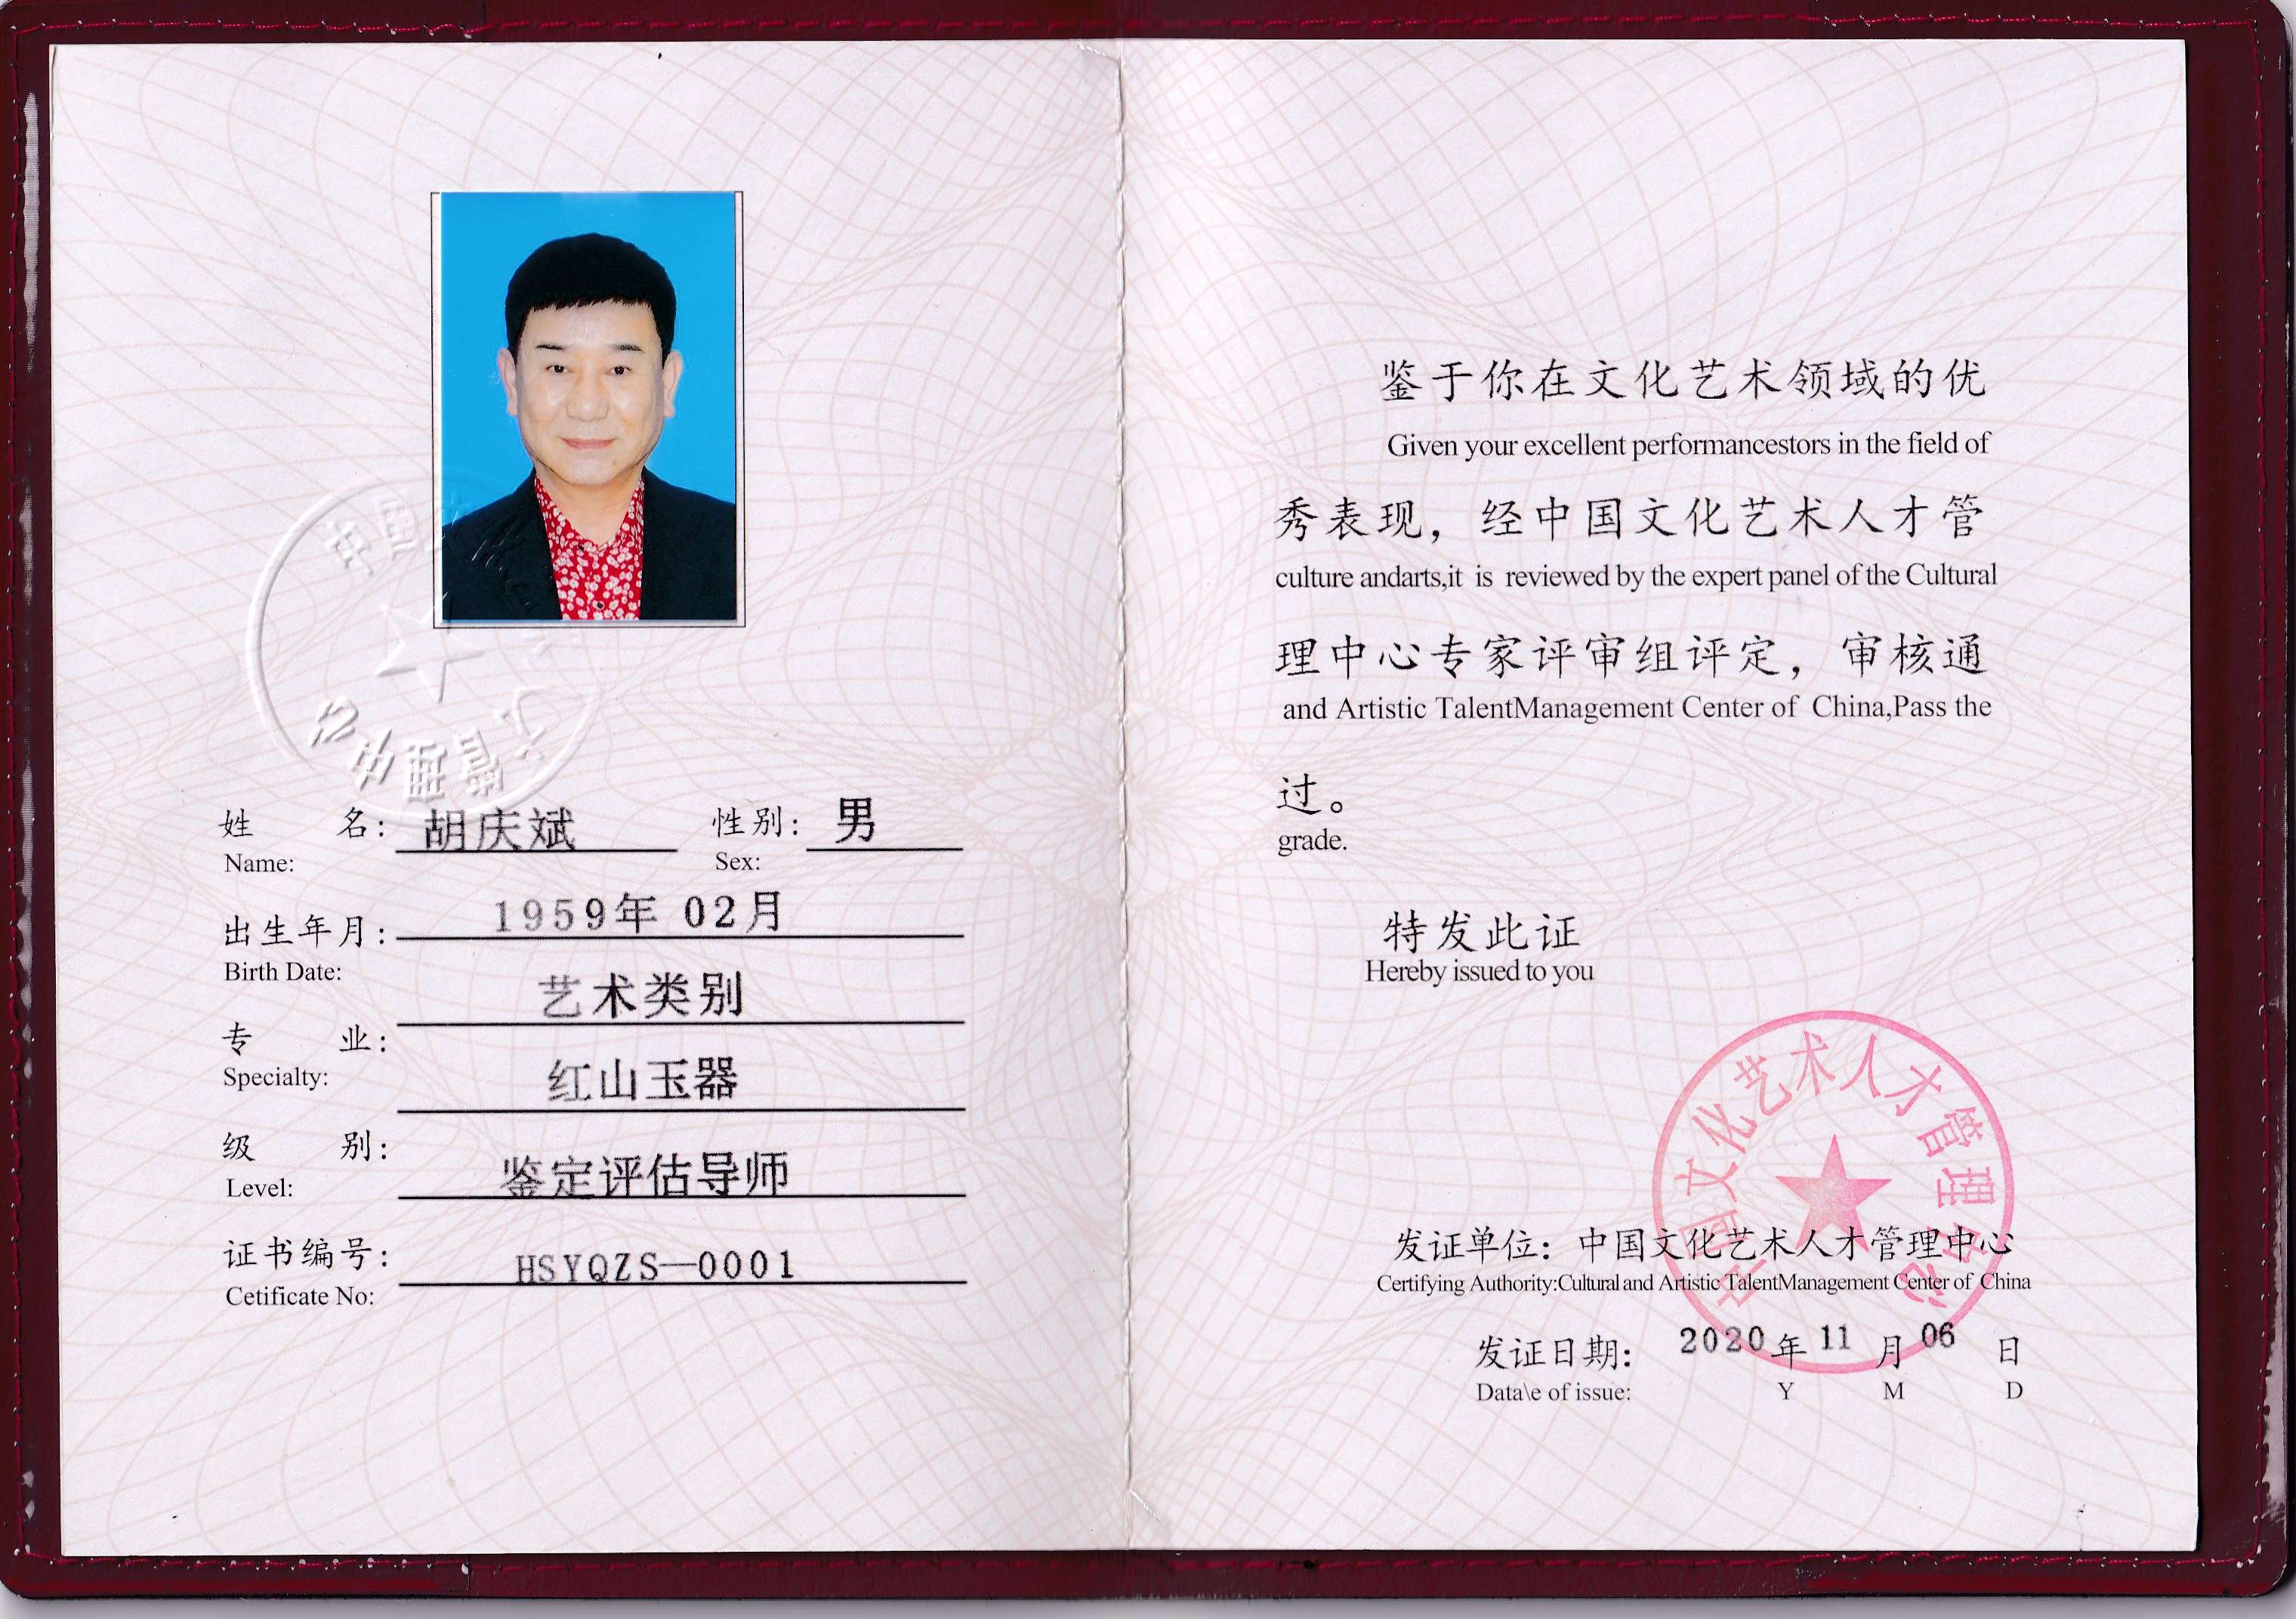 姓 名： 胡庆斌 性别： 男
Name: Sex:
出生年月： 1959年 02月
Birth Date:
艺术类别
专 业：
Specialty:
红山玉器
级 别： 鉴定评估导师
Level:
证书编号： HSYQZS—0001
Cetificate No:
鉴于你在文化艺术领域的优
Given your excellent performancestors in the field of
秀表现，经中国文化艺术人才管
culture andarts,it is reviewed by the expert panel of the Cultural
理中心专家评审组评定，审核通
and Artistic TalentManagement Center of China,Pass the
过。
grade.
特发此证
Hereby issued to you
中国文化艺术人才管理中心
发证单位：中国文化艺术人才管理中心
Certifying Authority:Cultural and Artistic TalentManagement Center of China
发证日期： 2020 年 11 月 06 日
Data\e of issue: Y M D